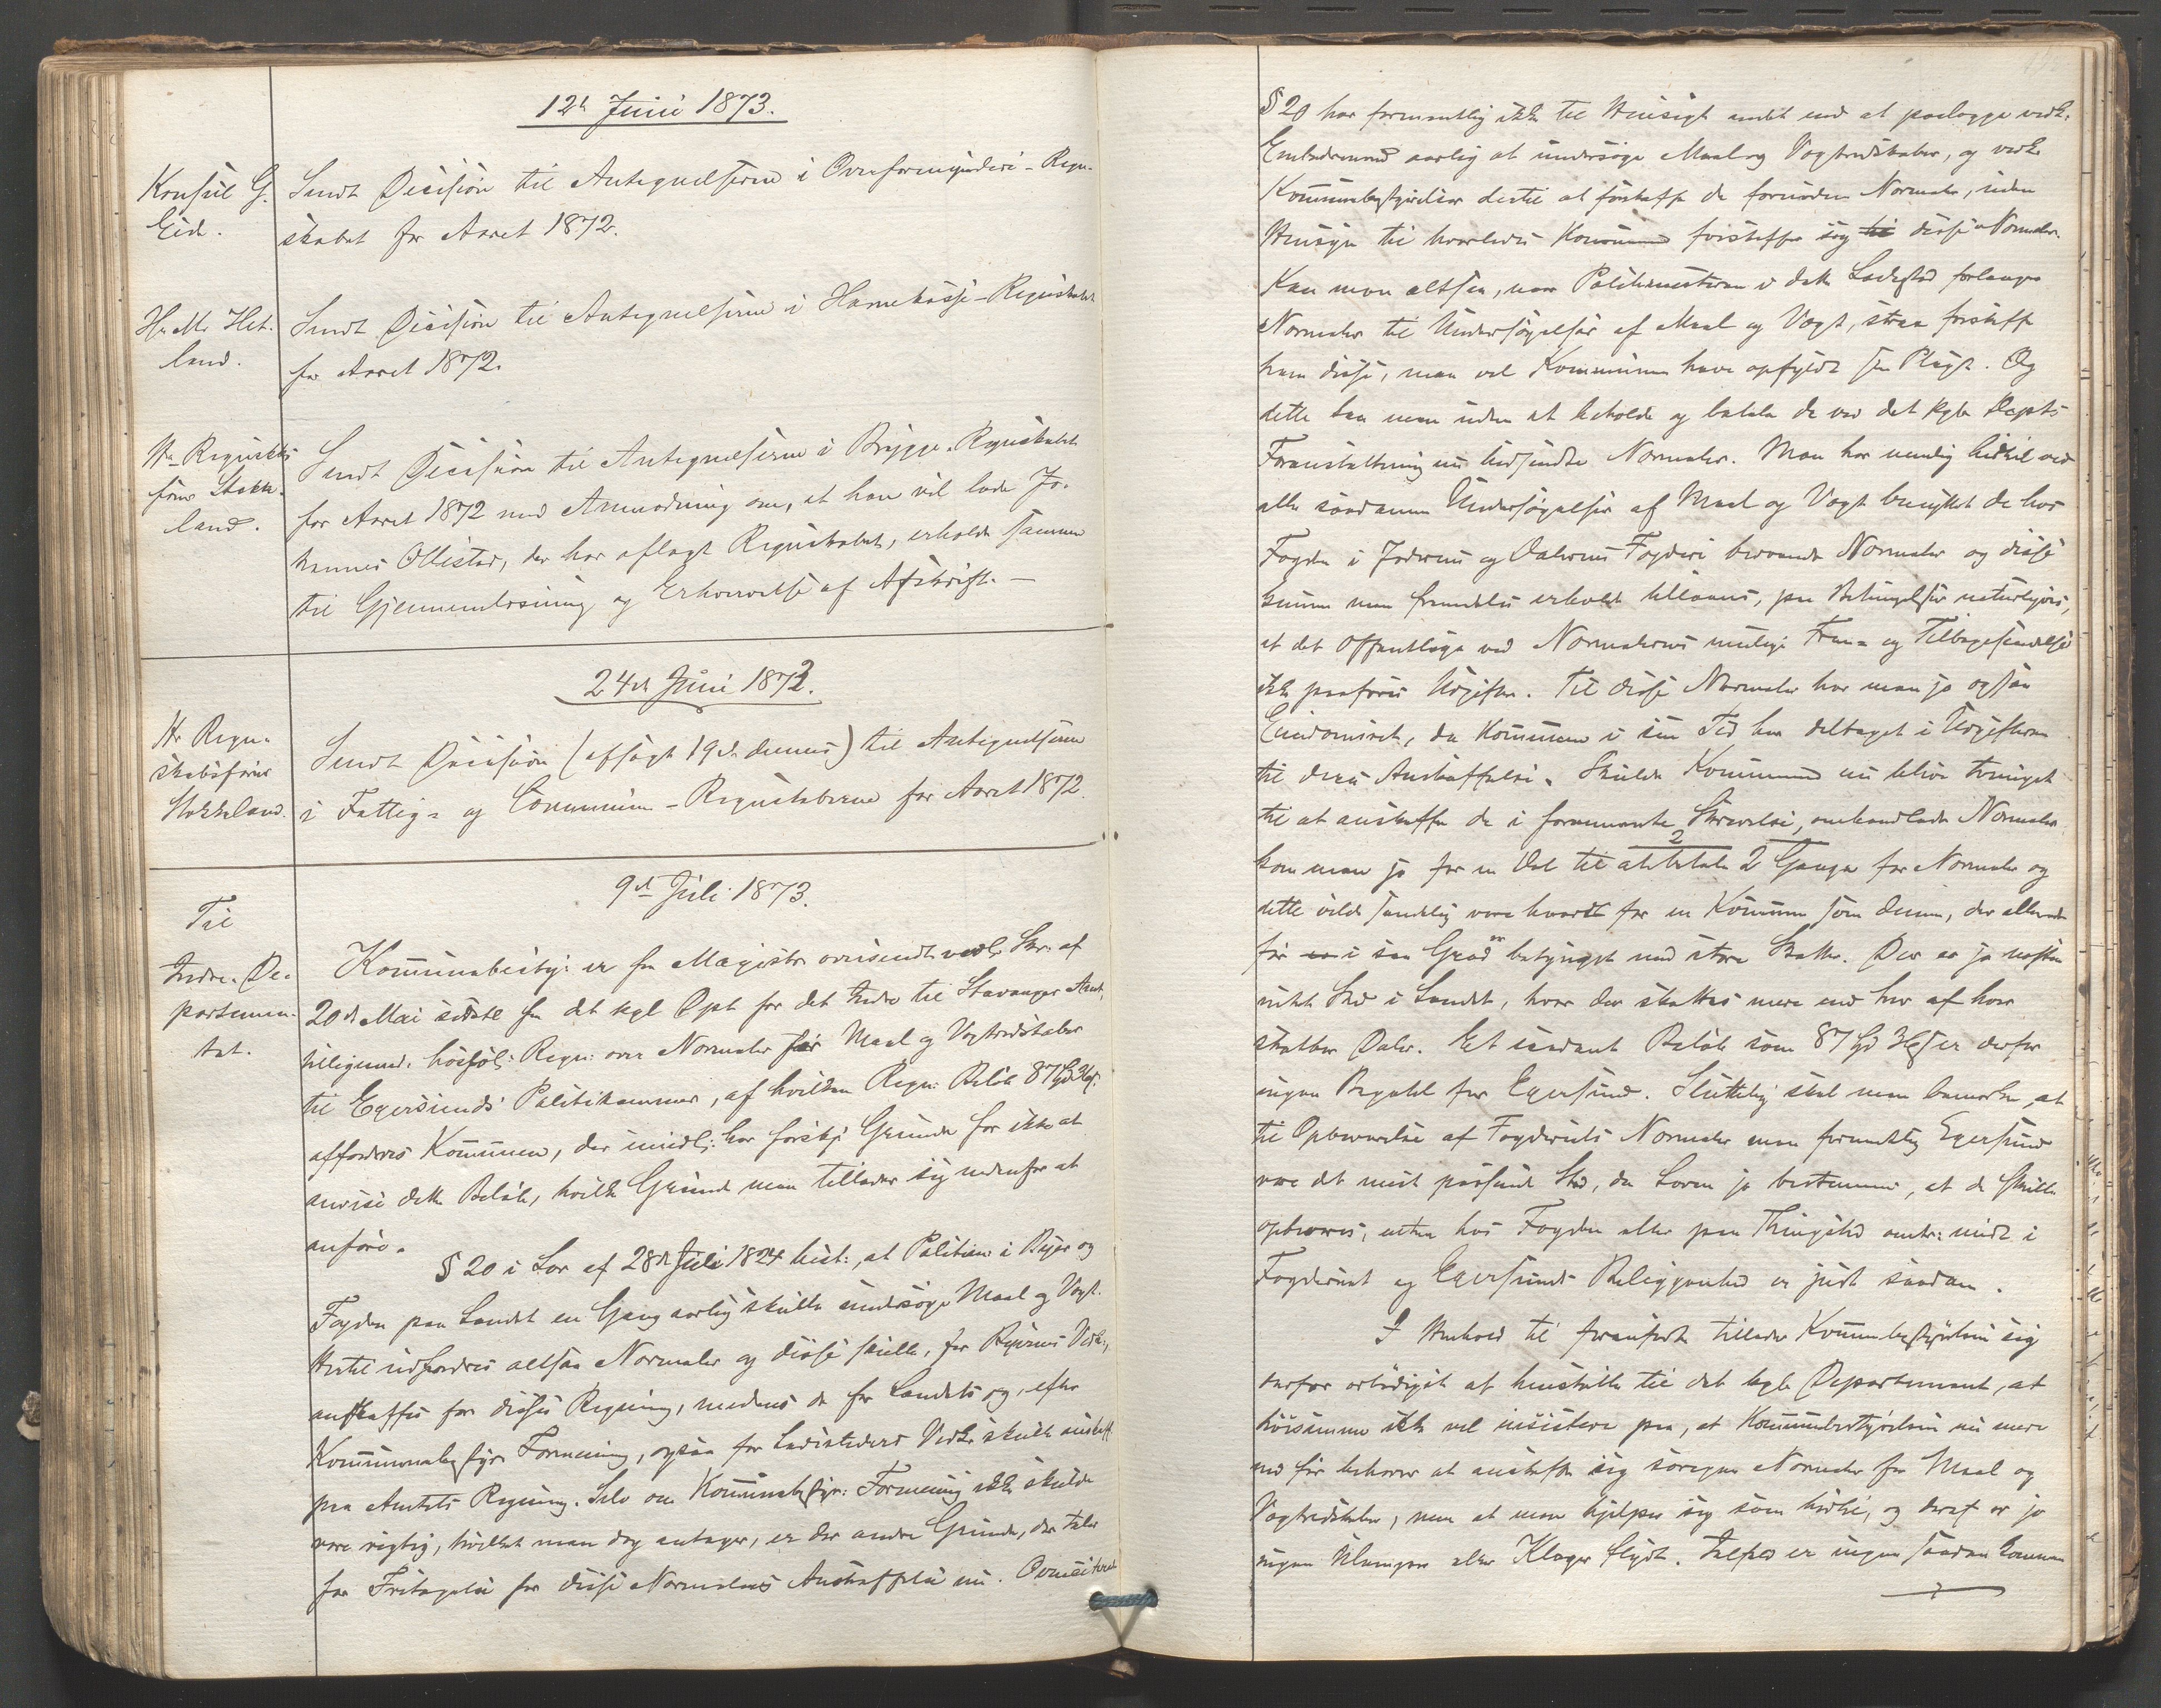 12te Juni 1873.
Konsul G.
Eide.
Sendt Decision til Antegnelserne i Overformynderi-Regn-
skabet for Aaret 1872.
Hr. M. Het-
land.
Sendt Decision til Antegnelserne i Havnekasse-Regnskabet
for Aaret 1872.
Hr Regnskbs
fører Stokke-
land.
Sendt Decision til Antegnelserne i Brygge-Regnskabet
for Aaret 1872 med Anmodning om, at han vil lade Jo-
hannes Ollestad, der har aflagt Regnskabet, erholde samme
til Gjennemlæsning og Erhvervelse af Afskrift. —
24de Juni 1873.
Hr Regn-
skabsfører
Stokkeland.
Sendt Decision (afsagt 19de dennes) til Antegnelserne
i Fattig- og Commune-Regnskaberne for Aaret 1872.
9de Juli 1873.
Til
Indre-De-
partemen-
tet.
Kommunebesty: er fra Magistr oversendt vedl: Skr. af
20de Mai sidstl fra det kgl Dpt for det Indre til Stavanger Amt,
tilligemed hosføl: Regn: over Normaler for Maal og Vægtredskaber
til Egersunds Politikammer, af hvilken Regn: Beløb 87 Spd 36 s.
affordres Kommunen, der imidl: har forskj: Grunde for ikke at
anvise dette Beløb, hvilke Grunde man tillader sig nedenfor at
anføre.
§ 20 i Lov af 28de Juli 1824 best:, at Politiet i Byer og
Fogden paa Landet en Gang aarlig skulle undersøge Maal og Vægt.
Hertil udfordres altsaa Normaler og disse skulle, for Byernes Vedk:,
anskaffes for disses Regning, medens de for Landets og, efter
Kommunebestyr: Formening, ogsaa for Ladesteders Vedk: skulle anskaff.
paa Amtets Regning. Selv om Kommunebestyr: Formening ikke skulde
være rigtig, hvilket man dog antager, er der andre Grunde, der taler
for Fritagelse for disse Normalers Anskaffelse nu. Ovenciterede
§ 20 har formentlig ikke til Hensigt andet end at paalægge vedk:
Embedsmænd aarlig at undersøge Maal og Vægtredskaber, og vedk:
Kommunebestyrelser dertil at forskaffe de fornødne Normaler, uden
Hensyn til hvorledes Kommunen forskaffer sig disse Normaler.
Kan man altsaa, naar Politimesteren i dette Ladested forlanger
Normaler til Undersøgelser af Maal og Vægt, strax forskaffe
ham disse, maa vel Kommunen have opfyldt sin Pligt. Og
dette kan man uden at beholde og betale de ved det kgle Depts
Foranstaltning nu hidsendte Normaler. Man har nemlig hidtil ved
alle saadanne Undersøgelser af Maal og Vægt benyttet de hos
Fogden i Jæderens og Dalernes Fogderi beroende Normaler og disse
kunne man fremdeles erholde tillaans, paa Betingelser naturligvis,
at det Offentlige ved Normalernes mulige Frem- og Tilbagesendelse
ikke paaføres Udgifter. Til disse Normaler har man jo ogsaa
Eiendomsret, da Kommunen i sin Tid har deltaget i Udgifterne
til deres Anskaffelse. Skulde Kommunen nu blive tvunget
til at anskaffe de i foranævnte Skrivelse omhandlede Normaler
kom man jo for en Del til at betale 2 Gange for Normaler og
dette vilde sandelig være hardt for en Kommune som denne, der allerede
før i saa Grad er betynget med store Skatter. Der er jo næsten
intet Sted i Landet, hvor der skattes mere end her af hver
skatbar Daler. Et saadant Beløb som 87 Spd 36 s er derfor
ingen Bagatel for Egersund. Sluttelig skal man bemærke, at
til Opbevarelse af Fogderiets Normaler maa formentlig Egersund
være det mest passende Sted, da Loven jo bestemmer, at de skulle
opbevares, enten hos Fogden eller paa Thingsted omtr: midt i
Fogderiet og Egersunds Beliggenhed er just saadan.
I Henhold til foranførte tillader Kommunebestyrelsen sig
derfor ærbødigst at henstille til det kgle Departement, at
høisamme ikke vil insistere paa, at Kommunebestyrelsen nu mere
end før behøver at anskaffe sig særegne Normaler for Maal og
Vægtredskaber, men at man hjælper sig som hidtil, og deraf er jo
ingen Ulemper eller Klager flydt. Ialfald er ingen saadan kommen